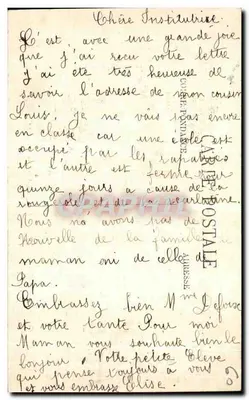 Chère Institutrice
C'est avec une grande joie
que j'ai recu votre lettre
j'ai été très heureuse de
savoir l'adresse de mon cousin
Louis. Je ne vais pas encore
en classe car une école est
occupée par les
et l'autre est fermée
quinze jours a cause de la
rougeole et de la scarlatine
Nous na avons pas de
Nouvelle de la famille
maman ni de celle de
Papa.
Embrassez bien Mme
et votre tante Pour moi
Maman vous souhaite bien le
bonjour Votre petite Eleve
qui pense toujours a vous
et vous embrasse Elise.
CARTE POSTALE
CORRESPONDANCE
ADRESSE